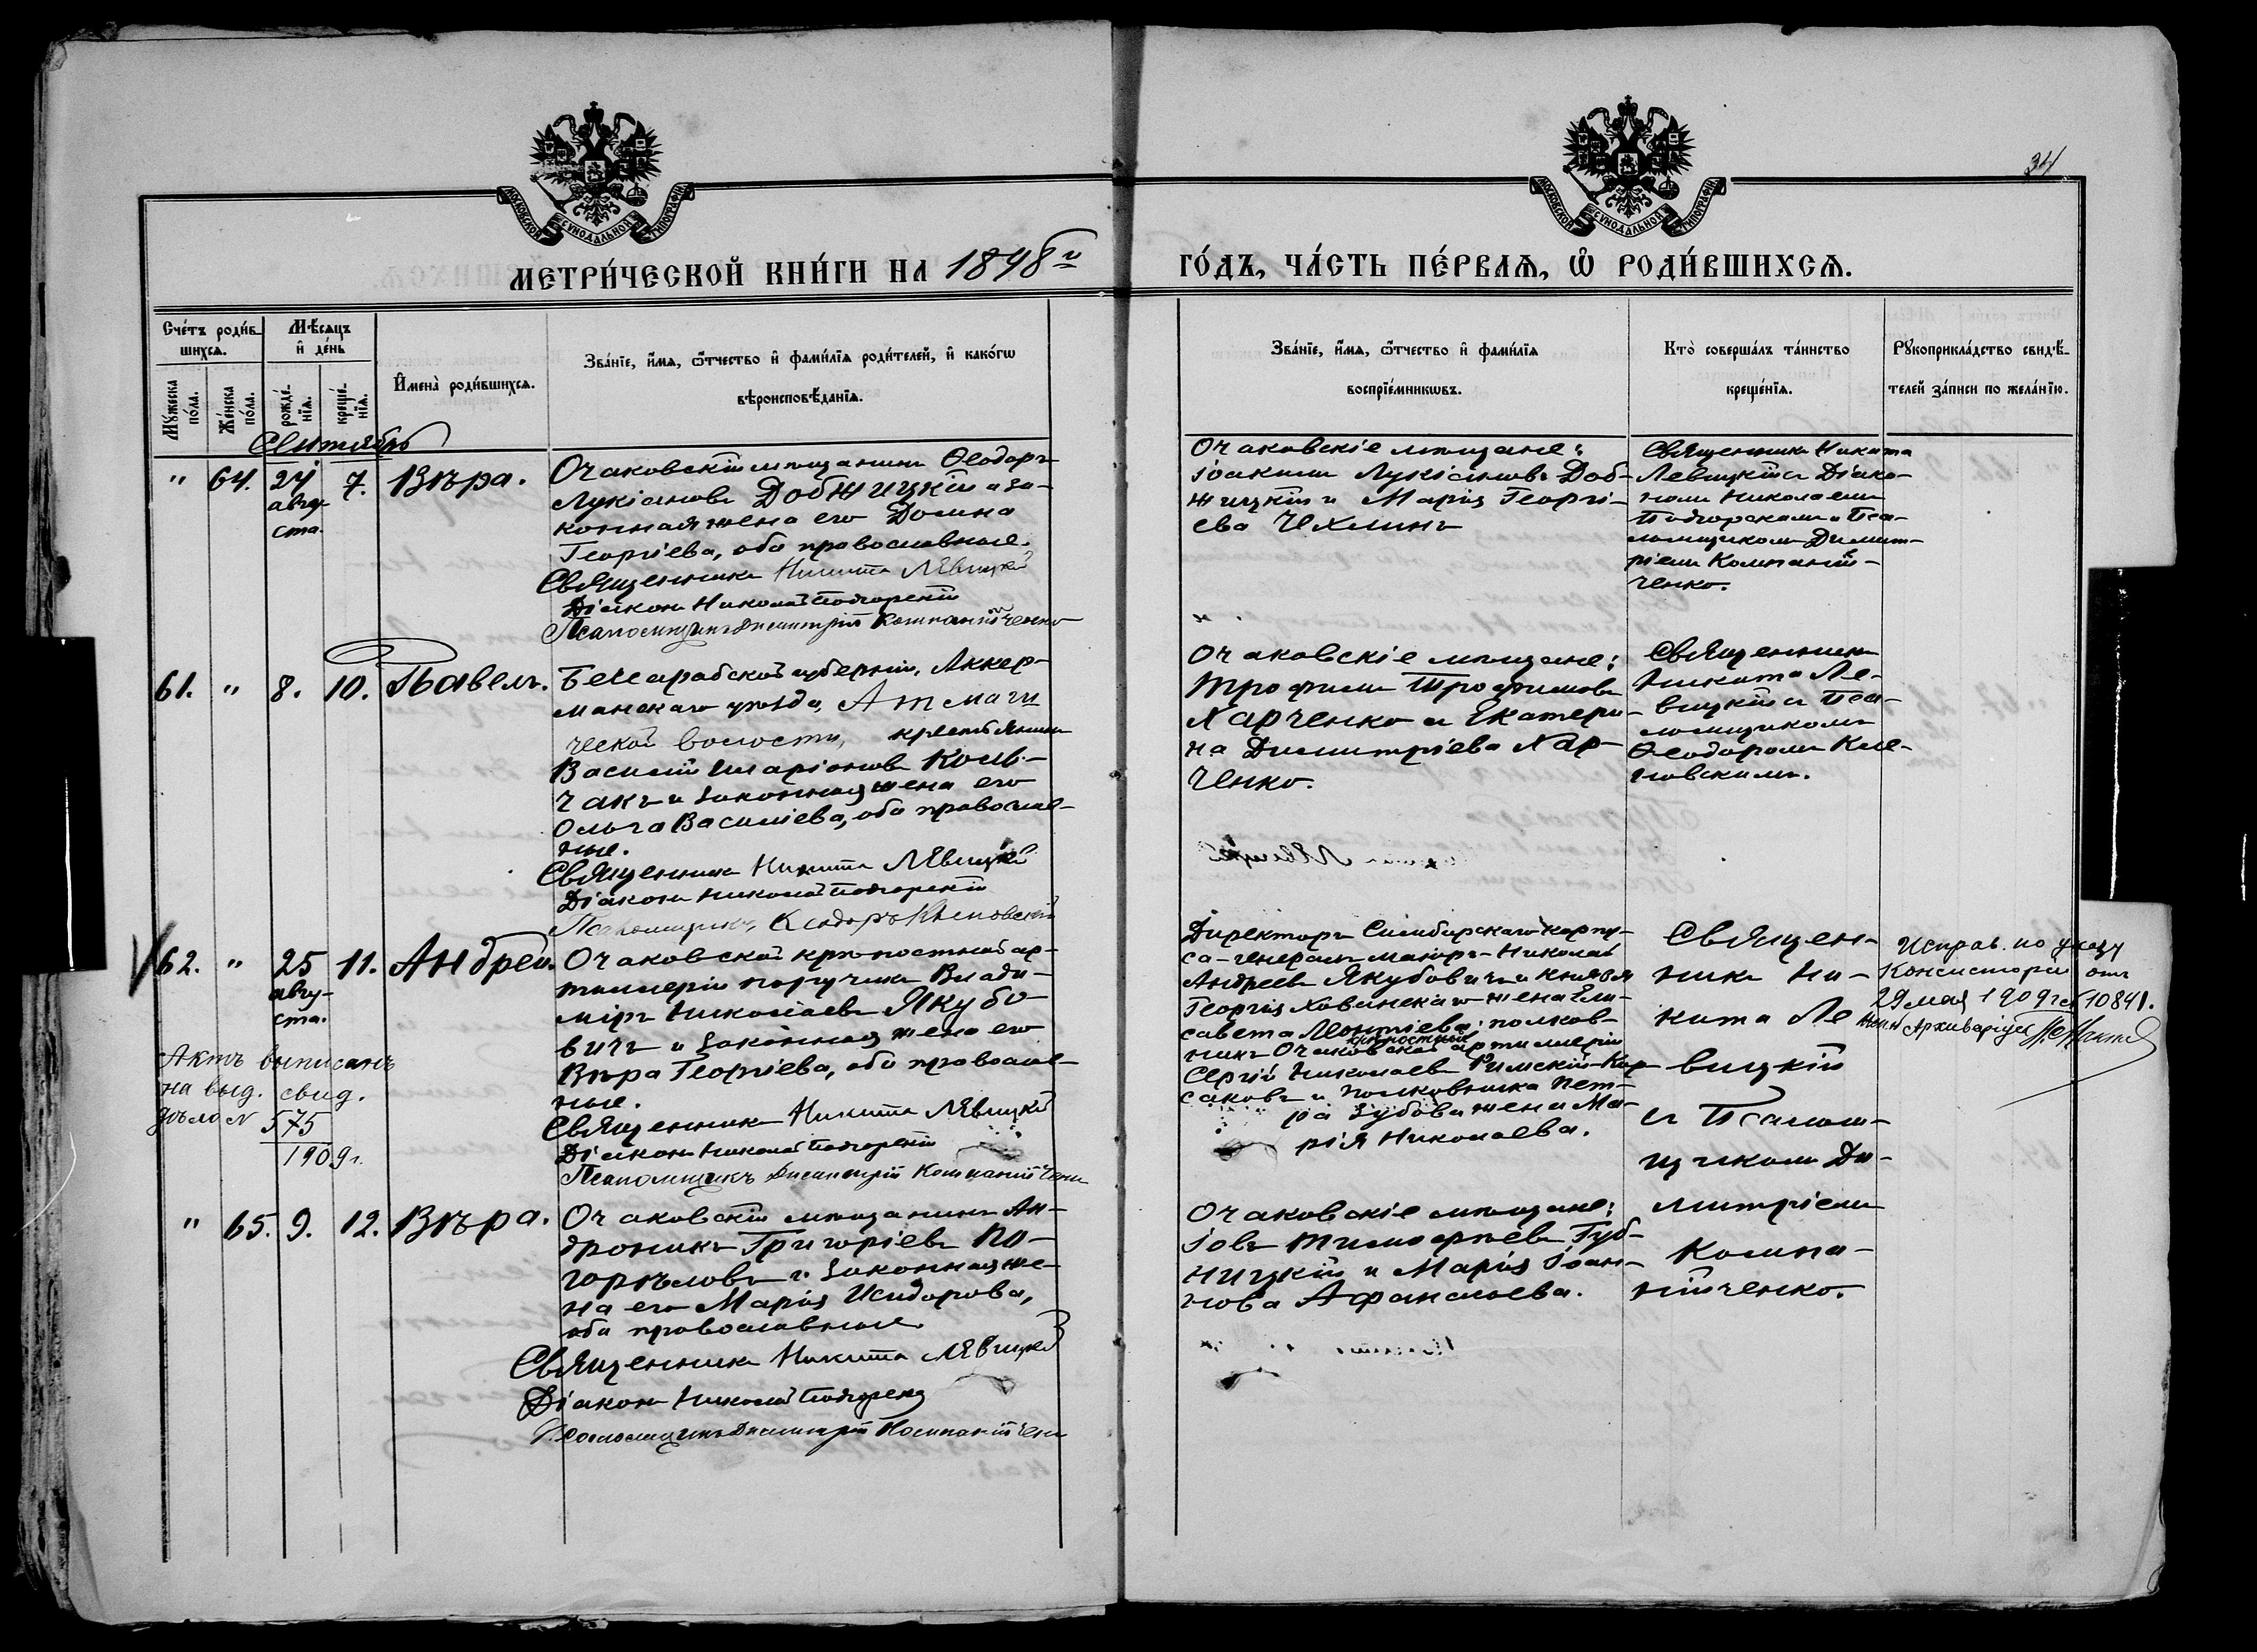 34
МОСКОВСКОЙ СУНОДАЛЬНОЙ ТИПОГРАФІИ
МОСКОВСКОЙ СУНОДАЛЬНОЙ ТИПОГРАФІИ
МЕТРИ́ЧЕСКОЙ КНИ́ГИ НА 1898й
ГО́ДЪ, ЧА́СТЬ ПЕ́РВАѦ, Ѡ҆ РОДИ́ВШИХСѦ.
Сче́тъ роди́в-
шихсѧ.
Мѣ́сѧцъ
и҆ де́нь
Мꙋ́жеска
по́ла.
Же́нска
по́ла.
рожде́-
нїѧ.
креще́-
нїѧ.
И҆мена̀ роди́вшихсѧ.
Зва́нїе, и҆́мѧ, ѻ҆́тчество и҆ фами́лїѧ роди́телей, и҆ како́гѡ
вѣроисповѣ́данїѧ.
Зва́нїе, и҆́мѧ, ѻ҆́тчество и҆ фами́лїѧ
воспрїе́мникѡвъ.
Кто̀ соверша́лъ та́инство
креще́нїѧ.
Рꙋкоприкла́дство свидѣ́-
телей за́писи по жела́нїю.
Сентябрь
" 64. 24 авгу-
ста. 7. Вѣра.
Очаковскій мѣщанинъ Ѳеодоръ
Лукіановъ Добжицкій и за-
конная жена его Домна
Георгіева, оба православные.
Священникъ Никита Левицкій
Діаконъ Николай Подгорскій
Псаломщикъ Димитрій Компанійченко
Очаковскіе мѣщане:
Іоакимъ Лукіановъ Доб-
жицкій и Марія Георгі-
ева Чехлинъ
Священникъ Никита
Левицкій съ Діако-
номъ Николаемъ
Подгорскимъ и Пса-
ломщикомъ Димит-
ріемъ Компаній-
ченко.
61. " 8. 10. Павелъ.
Бессарабской губерніи, Аккер-
манскаго уѣзда, Атмаги
ческой волости, крестьянинъ
Василій Иларіоновъ Колв-
чакъ и законная жена его
Ольга Василіева, оба православ-
ные.
Священникъ Никита Левицкій
Діаконъ Николай Подгорскій
Псаломщикъ Ѳеодоръ
Очаковскіе мѣщане:
Трофимъ Трофимовъ
Харченко и Екатери-
на Димитріева Хар-
ченко.
Священникъ
Никита Ле-
вицкій съ Пса-
ломщикомъ
Ѳеодоромъ Кле-
новскимъ.
62. " 25 авгу-
ста. 11. Андрей.
Очаковской крѣпостной ар-
тиллеріи поручикъ Влади-
міръ Николаевъ Якубо-
вичъ и законная жена его
Вѣра Георгіева, оба православ-
ные.
Священникъ Никита Левицкій
Діаконъ Николай Подгорскій
Псаломщикъ Димитрій Компанійченко
Актъ выписанъ
на выд. свид.
дѣло N 575
1909 г.
Директоръ Симбирскаго корпу-
са-генералъ маіоръ Николай
Андреевъ Якубовичъ и князя
Георгія Хованскаго жена Ели-
савета Леонтіева; полков-
никъ Очаковской крѣпостной артиллеріи
Сергій Николаевъ Римскій-Кор-
саковъ и полковника Пет-
ра Зубова жена Ма-
рія Николаева.
Священ-
никъ Ни-
кита Ле
вицкій
съ Псалом-
щикомъ Ди-
митріемъ
Компа-
нійченко.
Исправ. по указу
Консисторіи отъ
29 мая 1909 г. N 10841.
Архиваріусъ
" 65. 9. 12. Вѣра.
Очаковскій мѣщанинъ Ан-
дроникъ Григоріевъ По-
горѣловъ и законная же-
на его Марія Исидорова,
оба православные.
Священникъ Никита Левицкій
Діаконъ Николай Подгорскій
Псаломщикъ Димитрій Компанійченко
Очаковскіе мѣщане:
Іовъ Тимофеевъ Губ-
ницкій и Марія Іоан-
нова Афанасьева.